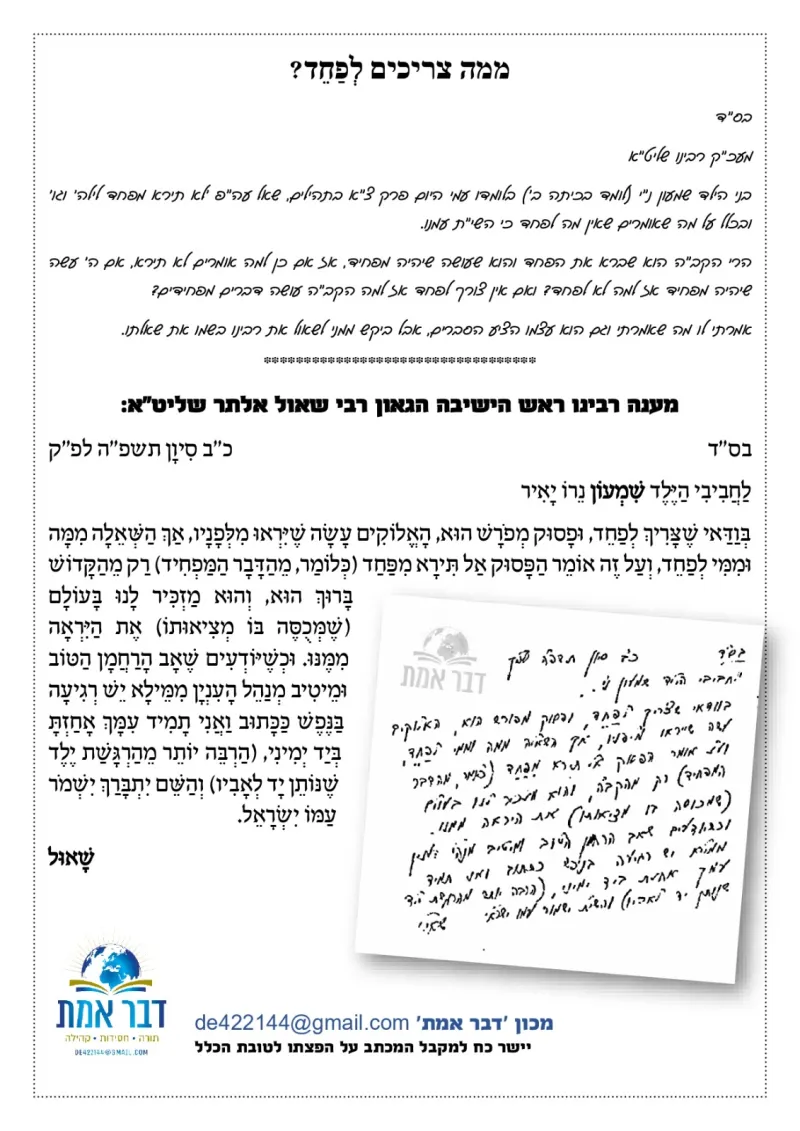 ממה צריכים לְפַחֵד?
בס"ד
מעכ"ק רבינו שליט"א
בני הילד שמעון נ"י (לומד בכיתה ב') בלומדו עמי היום פרק צ"א בתהילים, שאל עה"פ לא תירא מפחד לילה' וגו'
ובכלל על מה שאומרים שאין מה לפחד כי השי"ת עמנו.
הרי הקב"ה הוא שברא את הפחד והוא שעושה שיהיה מפחיד, אז אם כן למה אומרים לא תירא, אם ה' עשה
שיהיה מפחיד אז למה לא לפחד? ואם אין צורך לפחד אז למה הקב"ה עושה דברים מפחידים?
אמרתי לו מה שאמרתי וגם הוא עצמו הציע הסברים, אבל ביקש ממני לשאול את רבינו בשמו את שאלתו.
**********************************
מענה רבינו ראש הישיבה הגאון רבי שאול אלתר שליט"א:
בס"ד כ"ב סִיוָן תשפ"ה לפ"ק
לַחֲבִיבִי הַיֶּלֶד שִׁמְעוֹן נֵרוֹ יָאִיר
בְּוַדַּאי שֶׁצָּרִיךְ לְפַחֵד, וּפָסוּק מְפֹרָשׁ הוּא, הָאֱלוֹקִים עָשָׂה שֶׁיִּרְאוּ מִלְּפָנָיו, אַךְ הַשְּׁאֵלָה מִמָּה
וּמִמִּי לְפַחֵד, וְעַל זֶה אוֹמֵר הַפָּסוּק אַל תִּירָא מִפַּחַד (כְּלוֹמַר, מֵהַדָּבָר הַמַּפְחִיד) רַק מֵהַקָּדוֹשׁ
בָּרוּךְ הוּא, וְהוּא מַזְכִּיר לָנוּ בָּעוֹלָם
(שֶׁמְּכֻסֶּה בּוֹ מְצִיאוּתוֹ) אֶת הַיִּרְאָה
מִמֶּנּוּ. וּכְשֶׁיּוֹדְעִים שֶׁאָב הָרַחֲמָן הַטּוֹב
וּמֵיטִיב מְנַהֵל הָעִנְיָן מִמֵּילָא יֵשׁ רְגִיעָה
בַּנֶּפֶשׁ כַּכָּתוּב וַאֲנִי תָמִיד עִמָּךְ אָחַזְתָּ
בְּיַד יְמִינִי, (הַרְבֵּה יוֹתֵר מֵהַרְגָּשַׁת יֶלֶד
שֶׁנּוֹתֵן יָד לְאָבִיו) וְהַשֵּׁם יִתְבָּרַךְ יִשְׁמֹר
עַמּוֹ יִשְׂרָאֵל.
שָׁאוּל
דבר אמת
בס"ד כ"ב סיון תשפ"ה לפ"ק
לחביבי הילד שמעון ני'
בוודאי שצריך לפחד, ופסוק מפורש הוא, האלוקים
עשה שייראו מלפניו, אך השאלה ממה וממי לפחד,
ועל"ז אומר הפסוק אל תירא מפחד (כלומר, מהדבר
המפחיד) רק מהקב"ה, והוא מזכיר לנו בעולם
(שמכוסה בו מציאותו) את היראה ממנו.
וכשיודעים שאב הרחמן הטוב ומיטיב מנהל הענין
ממילא יש רגיעה בנפש ככתוב ואני תמיד
עמך אחזת ביד ימיני, (הרבה יותר מהרגשת ילד
שנותן יד לאביו) והשי"ת ישמור עמו ישראל שאול
דבר אמת
תורה • חסידות • קהילה
DE422144@GMAIL.COM
מכון 'דבר אמת' de422144@gmail.com
יישר כח למקבל המכתב על הפצתו לטובת הכלל